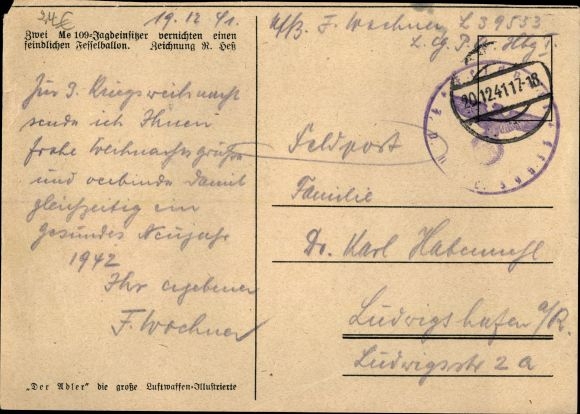 24€
19.12.41.
Zwei Me 109-Jagdeinsitzer vernichten einen
feindlichen Fesselballon. Zeichnung R. Heß
Zur 3. Kriegsweihnacht
sende ich Ihnen
frohe Weihnachtsgrüße
und verbinde damit
gleichzeitig ein
gesundes Neujahr
1942
Ihr ergebener
F. Wochner
„Der Adler" die große Luftwaffen-Illustrierte
F. Wochner L 39553
L. g. P. A. Hbg 1.
20.12.41.17-18
Feldpost
Familie
Dr. Karl Habermehl
Ludwigshafen a/R.
Ludwigsstr 2a